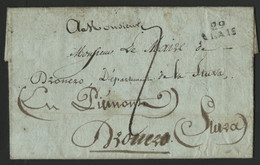 A Monsieur
Monsieur Le Maire de
Dronero, Département de la Stura
(En Piémont)
Dronero (Stura)